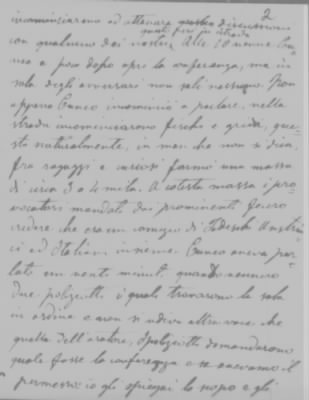 2
incominciarono ad attaccare discussioni
quali fuori in istrada
con qualcuno dei nostri. Alle 8 venne Cu-
neo e poco dopo aprì la conferenza, ma in
sala degli avversari non salì nessuno. Non
appena Cuneo incominciò a parlare, nella
strada incominciarono fischi e grida, que-
sti naturalmente, in men che non si dica,
fra ragazzi e curiosi formò una massa
di circa 3 o 4 mila. A cotesta massa i pro-
vocatori mandati dai prominenti fecero
credere che era un comizio di Tedeschi Austria-
ci ed Italiani insieme. Cuneo aveva par-
lato un venti minuti quando vennero
due poliziotti i quali trovarono la sala
in ordine e non si udiva altra voce che
quella dell'oratore, i poliziotti domandarono
quale fosse la conferenza e se avevamo il
permesso; io gli spiegai lo scopo e gli